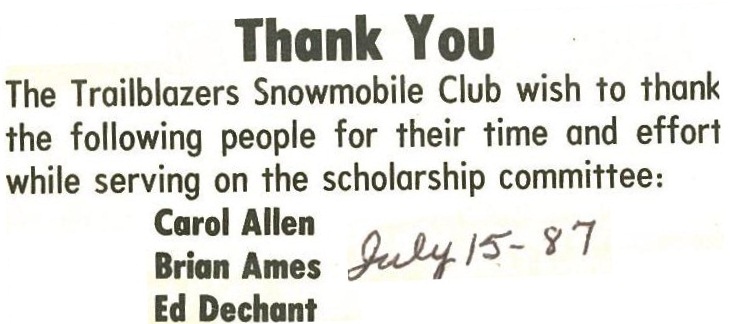 Thank You
The Trailblazers Snowmobile Club wish to thank
the following people for their time and effort
while serving on the scholarship committee:
Carol Allen
Brian Ames
July 15-87
Ed Dechant